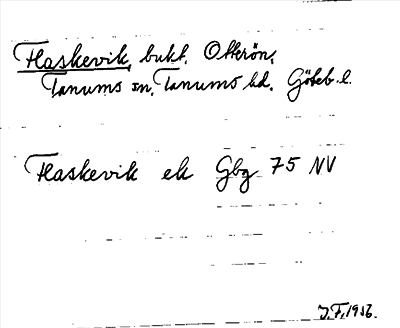 Flaskevik, bukt. Otterön,
Tanums sn, Tanums hd. Göteb. l.
Flaskevik ek Gbg 75 NV
J.F. 1936.